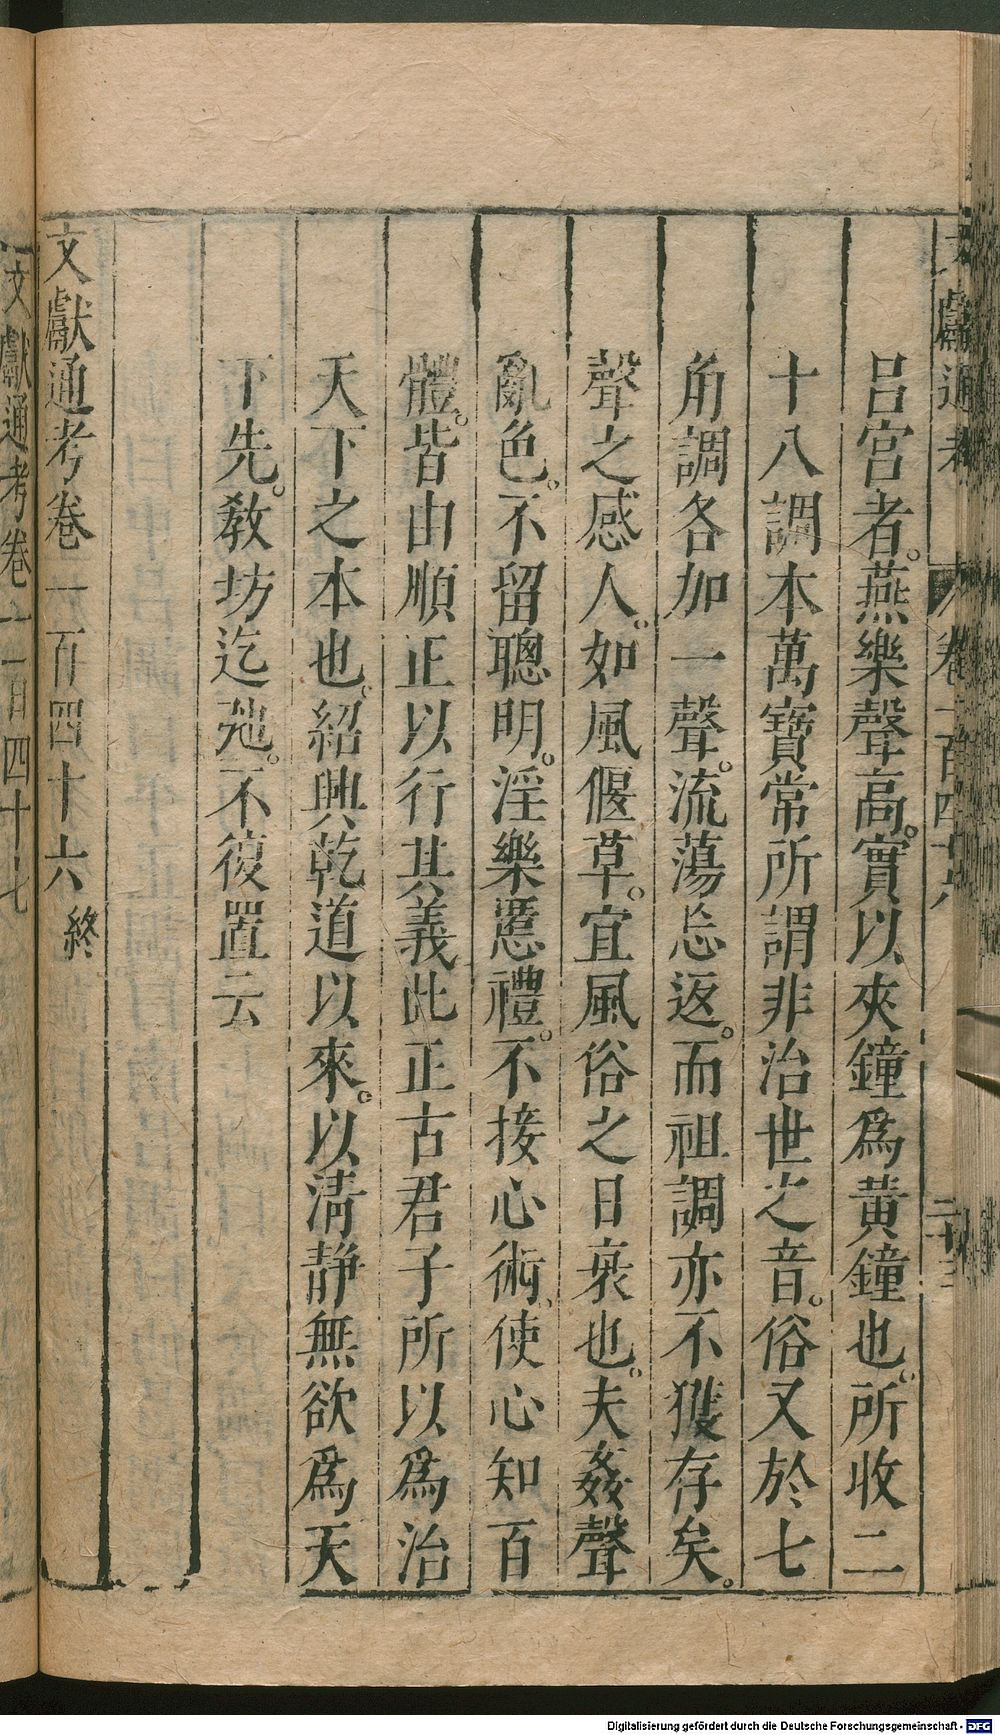 文獻通考 卷一百四十六 二十三
呂宮者。燕樂聲高。實以夾鐘爲黃鐘也。所收二
十八調本萬寶常所謂非治世之音。俗又於七
角調各加一聲。流蕩忘返。而祖調亦不獲存矣。
聲之感人。如風偃草。宜風俗之日衰也。夫姦聲
亂色。不留聰明。淫樂慝禮。不接心術。使心知百
體。皆由順正以行其義此正古君子所以爲治
天下之本也。紹興乾道以來。以淸靜無欲爲天
下先。敎坊迄弛。不復置云
文獻通考卷一百四十六 終
文獻通考卷一百四十七
Digitalisierung gefördert durch die Deutsche Forschungsgemeinschaft - DFG